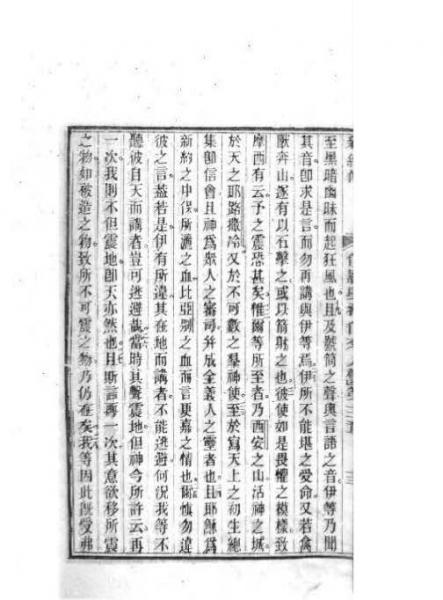 至黑暗幽昧而起狂風也且及號筒之聲與言語之音伊等乃聞
其音卽求是言而勿再講與伊等焉伊所不能堪之愛命又若禽
獸奔山遂有以石擊之或以箭射之也彼使如是畏懼之模樣致
摩西有云予之震恐甚矣惟爾等所至者乃西安之山活神之城
於天之耶路撒冷又於不可數之羣神使至於寫天上之初生總
集卽信會且神爲衆人之審司并成全義人之靈者也且耶穌爲
新約之中保所灑之血比亞別之血而言更嘉之情也爾慎勿違
彼之言蓋若是伊有所違其在地而講者不能逃避何況我等不
聽彼自天而講者豈可逃避哉當時其聲震地但神今所許云再
一次我則不但震地卽天亦然也且斯言再一次其意欲移所震
之物如被造之物致所不可震之物乃仍在矣我等因此旣受弗